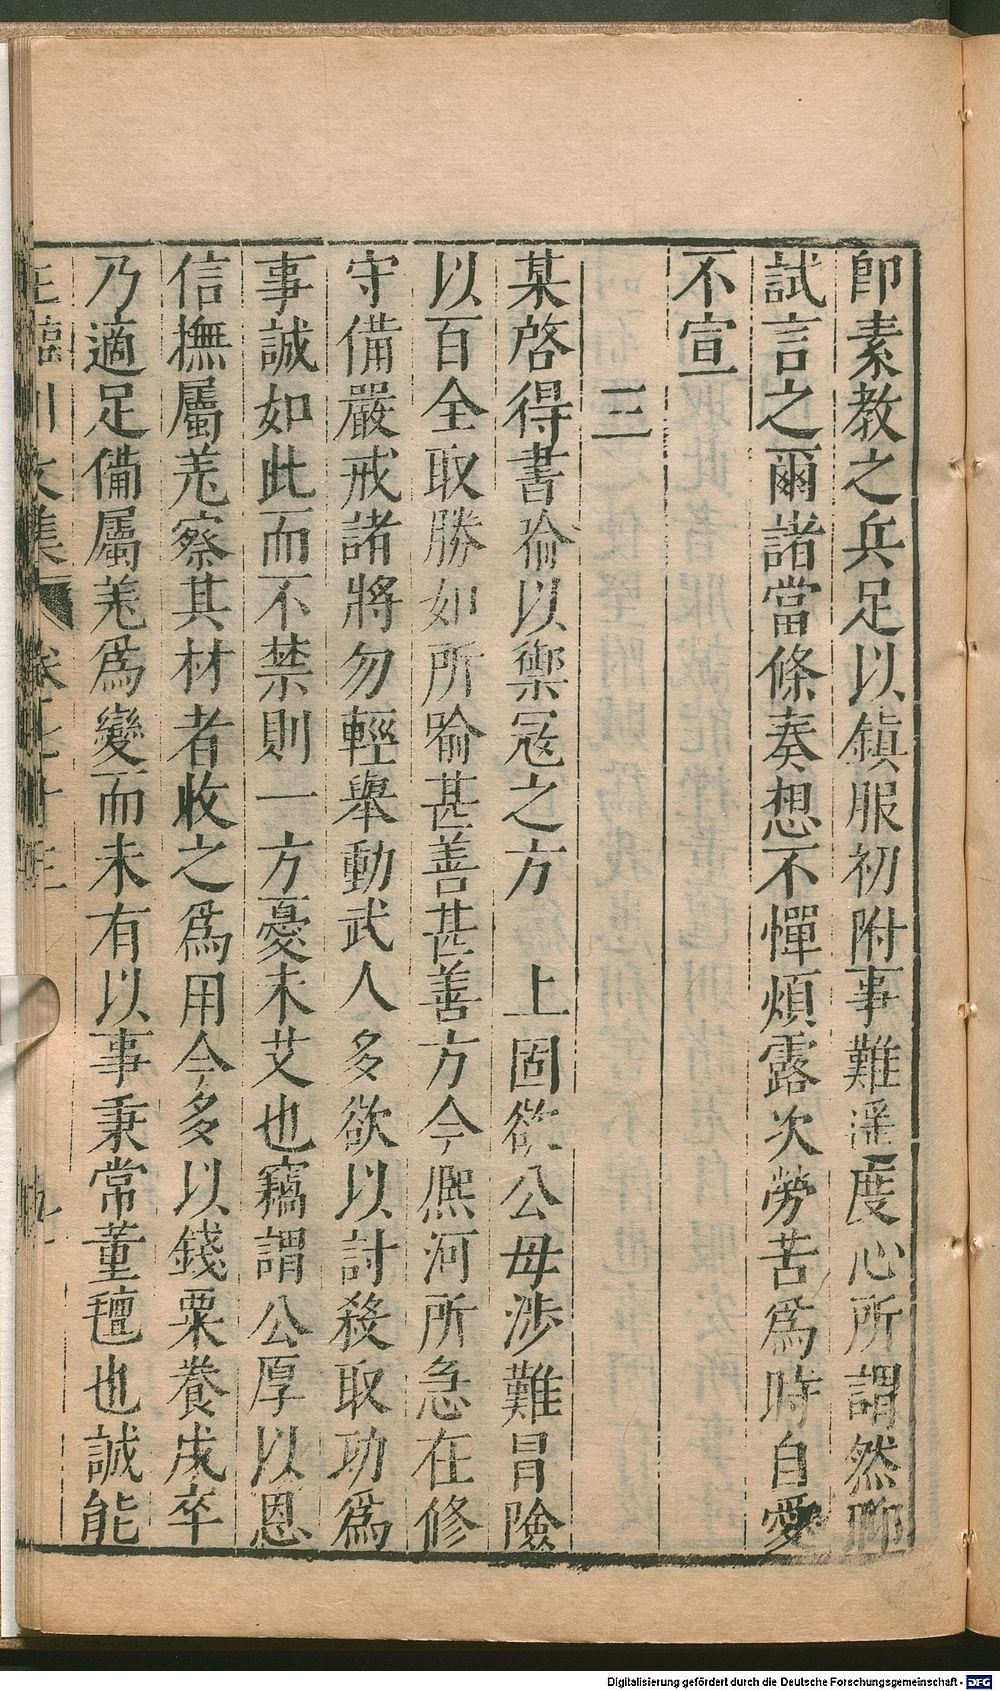 卽素教之兵足以鎮服初附事難遥度心所謂然聊
試言之爾諸當條奏想不憚煩露次勞苦爲時自愛
不宣
三
某啓得書喻以禦寇之方 上固欲公毋涉難冒險
以百全取勝如所喻甚善甚善方今熈河所急在修
守備嚴戒諸將勿輕舉動武人多欲以討殺取功爲
事誠如此而不禁則一方憂未艾也竊謂公厚以恩
信撫屬羗察其材者收之爲用今多以錢粟養戍卒
乃適足備屬羗爲變而未有以事秉常董氊也誠能
王臨川文集 卷七十三
Digitalisierung gefördert durch die Deutsche Forschungsgemeinschaft - DFG